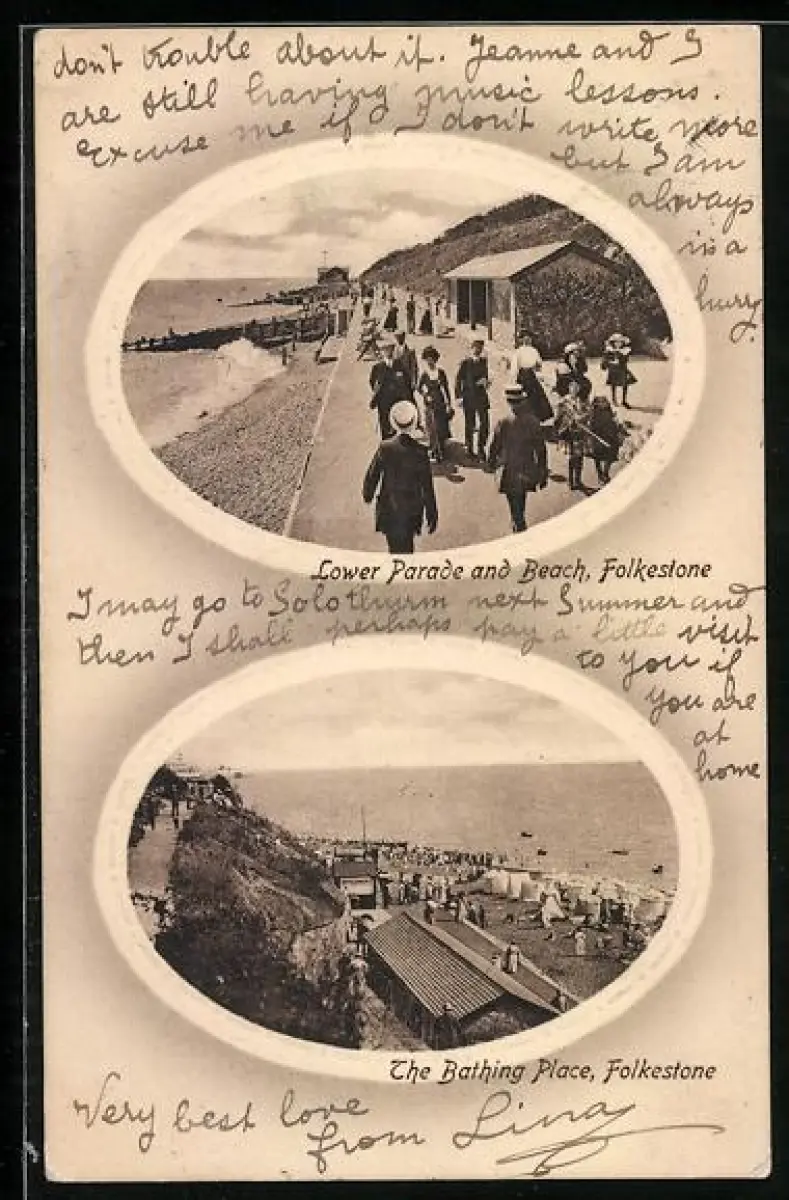 don't trouble about it. Jeanne and I
are still having music lessons.
Excuse me if I don't write more
but I am
always
in a
hurry.
Lower Parade and Beach, Folkestone
I may go to Solothurm next Summer and
then I shall perhaps pay a little visit
to you if
you are
at
home
The Bathing Place, Folkestone
Very best love
from Lina